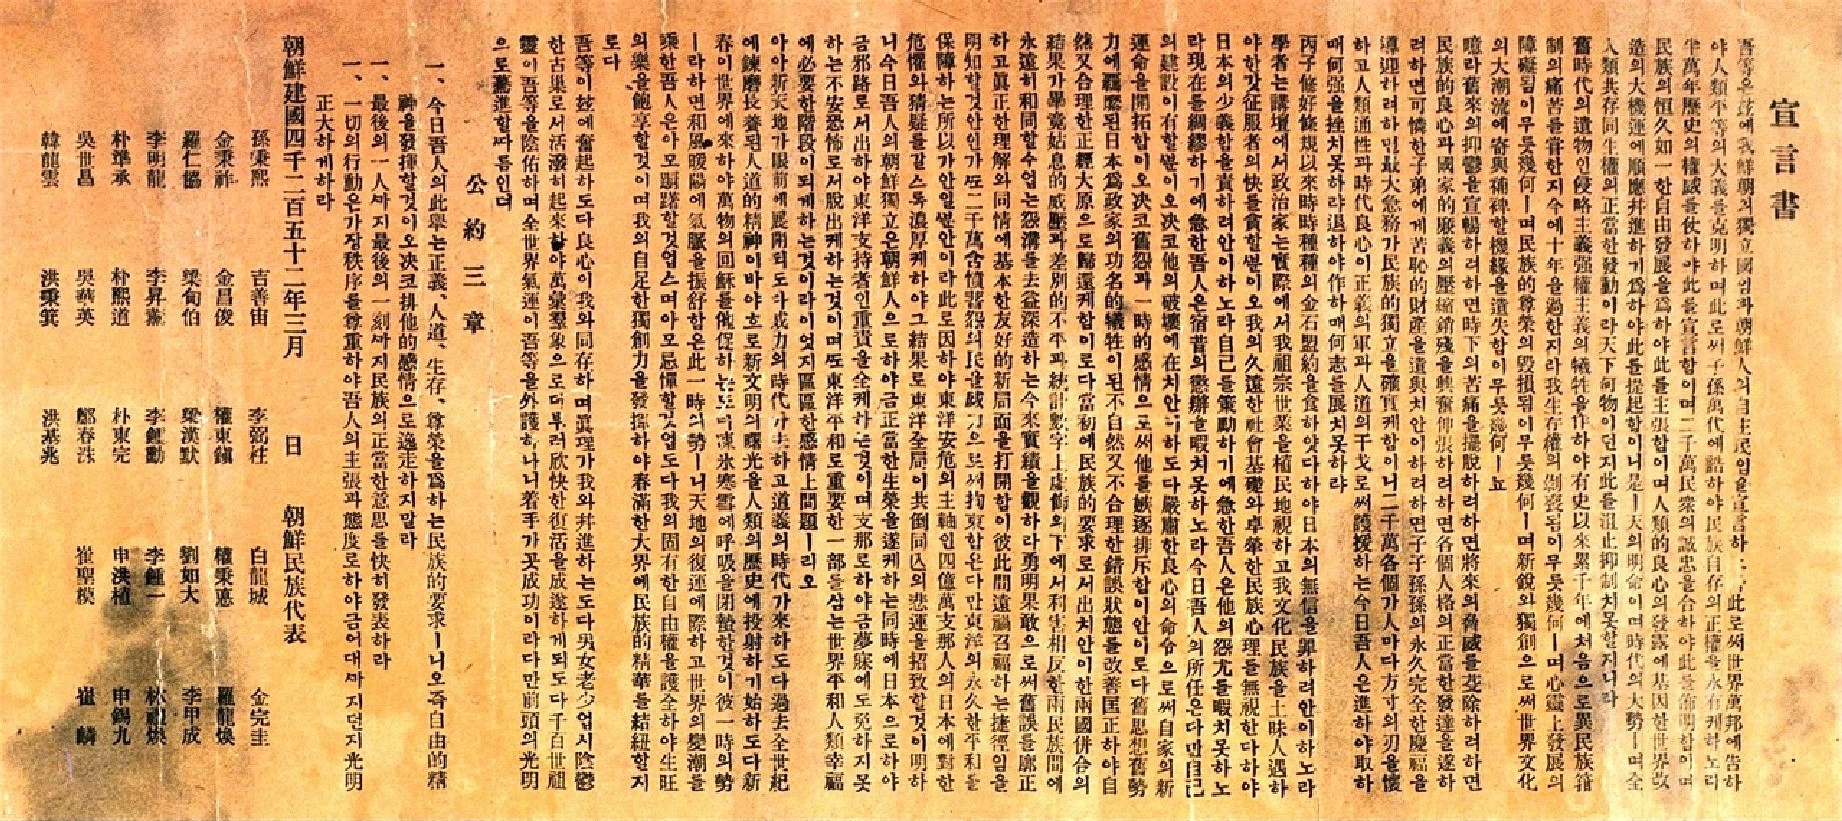 宣言書
吾等은玆에我鮮朝의獨立國임과朝鮮人의自主民임을宣言하노라此로써世界萬邦에告하
야人類平等의大義를克明하며此로써子孫萬代에誥하야民族自存의正權을永有케하노라
半萬年歷史의權威를仗하야此를宣言함이며二千萬民衆의誠忠을合하야此를佈明함이며
民族의恒久如一한自由發展을爲하야此를主張함이며人類的良心의發露에基因한世界改
造의大機運에順應幷進하기爲하야此를提起함이니是ㅣ天의明命이며時代의大勢ㅣ며全
人類共存同生權의正當한發動이라天下何物이던지此를沮止抑制치못할지니라
舊時代의遺物인侵略主義强權主義의犧牲을作하야有史以來累千年에처음으로異民族箝
制의痛苦를嘗한지今에十年을過한지라我生存權의剝喪됨이무릇幾何ㅣ며心靈上發展의
障礙됨이무릇幾何ㅣ며民族的尊榮의毁損됨이무릇幾何ㅣ며新銳와獨創으로써世界文化
의大潮流에寄與補裨할機緣을遺失함이무릇幾何ㅣ뇨
噫라舊來의抑鬱을宣暢하려하면時下의苦痛을擺脫하려하면將來의脅威를芟除하려하면
民族的良心과國家的廉義의壓縮銷殘을興奮伸張하려하면各個人格의正當한發達을遂하
려하면可憐한子弟에게苦恥的財産을遺與치안이하려하면子子孫孫의永久完全한慶福을
導迎하려하면最大急務가民族的獨立을確實케함이니二千萬各個가人마다方寸의刃을懷
하고人類通性과時代良心이正義의軍과人道의干戈로써護援하는今日吾人은進하야取하
매何强을挫치못하랴退하야作하매何志를展치못하랴
丙子修好條規以來時時種種의金石盟約을食하얏다하야日本의無信을罪하려안이하노라
學者는講壇에서政治家는實際에서我祖宗世業을植民地視하고我文化民族을土昧人遇하
야한갓征服者의快를貪할뿐이오我의久遠한社會基礎와卓犖한民族心理를無視한다하야
日本의少義함을責하려안이하노라自己를策勵하기에急한吾人은他의怨尤를暇치못하노
라現在를綢繆하기에急한吾人은宿昔의懲辦을暇치못하노라今日吾人의所任은다만自己
의建設이有할뿐이오决코他의破壞에在치안이하도다嚴肅한良心의命令으로써自家의新
運命을開拓함이오决코舊怨과一時的感情으로써他를嫉逐排斥함이안이로다舊思想舊勢
力에羈縻된日本爲政家의功名的犧牲이된不自然又不合理한錯誤狀態를改善匡正하야自
然又合理한正經大原으로歸還케함이로다當初에民族的要求로서出치안이한兩國倂合의
結果가畢竟姑息的威壓과差別的不平과統計數字上虛飾의下에서利害相反한兩民族間에
永遠히和同할수업는怨溝를去益深造하는今來實績을觀하라勇明果敢으로써舊誤를廓正
하고眞正한理解와同情에基本한友好的新局面을打開함이彼此間遠禍召福하는捷徑임을
明知할것안인가또二千萬含憤蓄怨의民을威力으로써拘束함은다만東洋의永久한平和를
保障하는所以가안일뿐안이라此로因하야東洋安危의主軸인四億萬支那人의日本에對한
危懼와猜疑를갈스록濃厚케하야그結果로東洋全局이共倒同亡의悲運을招致할것이明하
니今日吾人의朝鮮獨立은朝鮮人으로하야금正當한生榮을遂케하는同時에日本으로하야
금邪路로서出하야東洋支持者인重責을全케하는것이며支那로하야금夢寐에도免하지못
하는不安恐怖로서脫出케하는것이며또東洋平和로重要한一部를삼는世界平和人類幸福
에必要한階段이되게하는것이라이엇지區區한感情上問題ㅣ리오
아아新天地가眼前에展開되도다威力의時代가去하고道義의時代가來하도다過去全世紀
에鍊磨長養된人道的精神이바야흐로新文明의曙光을人類의歷史에投射하기始하도다新
春이世界에來하야萬物의回穌를催促하는도다凍氷寒雪에呼吸을閉蟄한것이彼一時의勢
ㅣ라하면和風暖陽에氣脈을振舒함은此一時의勢ㅣ니天地의復運에際하고世界의變潮를
乘한吾人은아모躊躇할것업스며아모忌憚할것업도다我의固有한自由權을護全하야生旺
의樂을飽享할것이며我의自足한獨創力을發揮하야春滿한大界에民族的精華를結紐할지
로다
吾等이玆에奮起하도다良心이我와同存하며眞理가我와幷進하는도다男女老少업시陰鬱
한古巢로서活潑히起來하야萬彙羣象으로더부러欣快한復活을成遂하게되도다千百世祖
靈이吾等을陰佑하며全世界氣運이吾等을外護하나니着手가곳成功이라다만前頭의光明
으로驀進할따름인뎌
公約三章
一、今日吾人의此擧는正義、人道、生存、尊榮을爲하는民族的要求ㅣ니오즉自由的精
神을發揮할것이오决코排他的感情으로逸走하지말라
一、最後의一人까지最後의一刻까지民族의正當한意思를快히發表하라
一、一切의行動은가장秩序를尊重하야吾人의主張과態度로하야금어대까지던지光明
正大하게하라
朝鮮建國四千二百五十二年三月 日 朝鮮民族代表
孫秉熙 吉善宙 李弼柱 白龍城 金完圭
金秉祚 金昌俊 權東鎭 權秉悳 羅龍煥
羅仁協 梁甸伯 梁漢默 劉如大 李甲成
李明龍 李昇薰 李鍾勳 李鍾一 林禮煥
朴準承 朴熙道 朴東完 申洪植 申錫九
吳世昌 吳華英 鄭春洙 崔聖模 崔麟
韓龍雲 洪秉箕 洪基兆